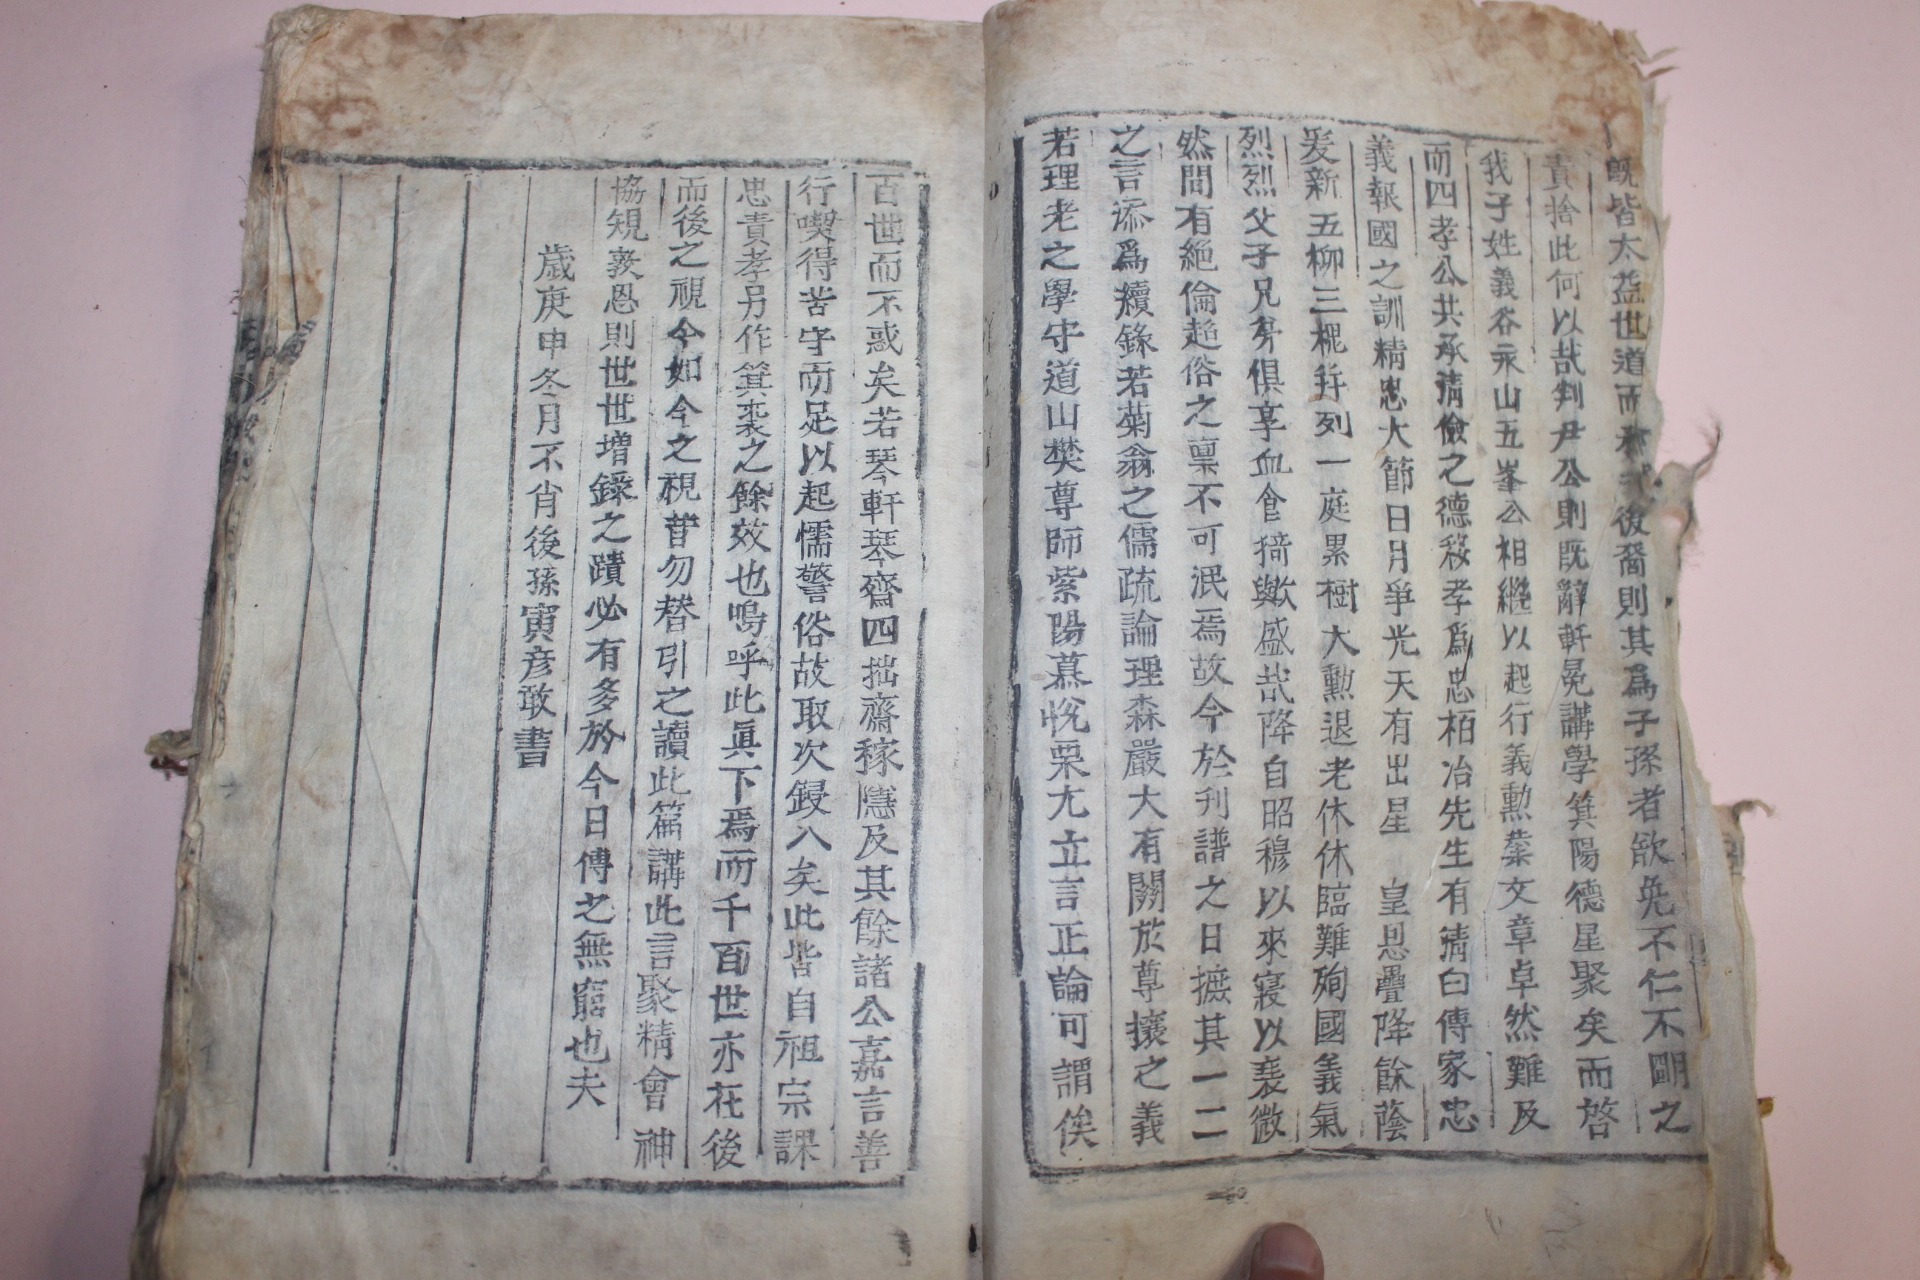 旣皆太益世道而 後裔則其爲子孫者欲免不仁不明之
責捨此何以哉判尹公則旣辭軒冕講學箕陽德星聚矣而啓
我子姓義谷永山五峯公相繼以起行義勳業文章卓然難及
而四孝公共承淸儉之德移孝爲忠栢冶先生有淸白傳家忠
義報國之訓精忠大節日月爭光天有出星 皇恩疊降餘蔭
爰新五柳三槐并列一庭累樹大勳退老休休臨難殉國義氣
烈烈父子兄弟俱享血食猗歟盛哉降自昭穆以來寢以衰微
然間有絕倫超俗之稟不可泯焉故今於刊譜之日摭其一二
之言添爲續錄若菊翁之儒疏論理森嚴大有關於尊攘之義
若理老之學守道山樊尊師紫陽慕悅栗尤立言正論可謂俟
百世而不惑矣若琴軒琴齋四拙齋稼隱及其餘諸公嘉言善
行喫得苦守而足以起懦警俗故取次鋟入矣此皆自祖宗課
忠責孝弓作箕裘之餘效也嗚呼此眞下焉而千百世亦在後
而後之視今如今之視昔勿替引之讀此篇講此言聚精會神
協規敦恩則世世增錄之蹟必有多於今日傳之無窮也夫
歲庚申冬月不肖後孫寅彦敢書